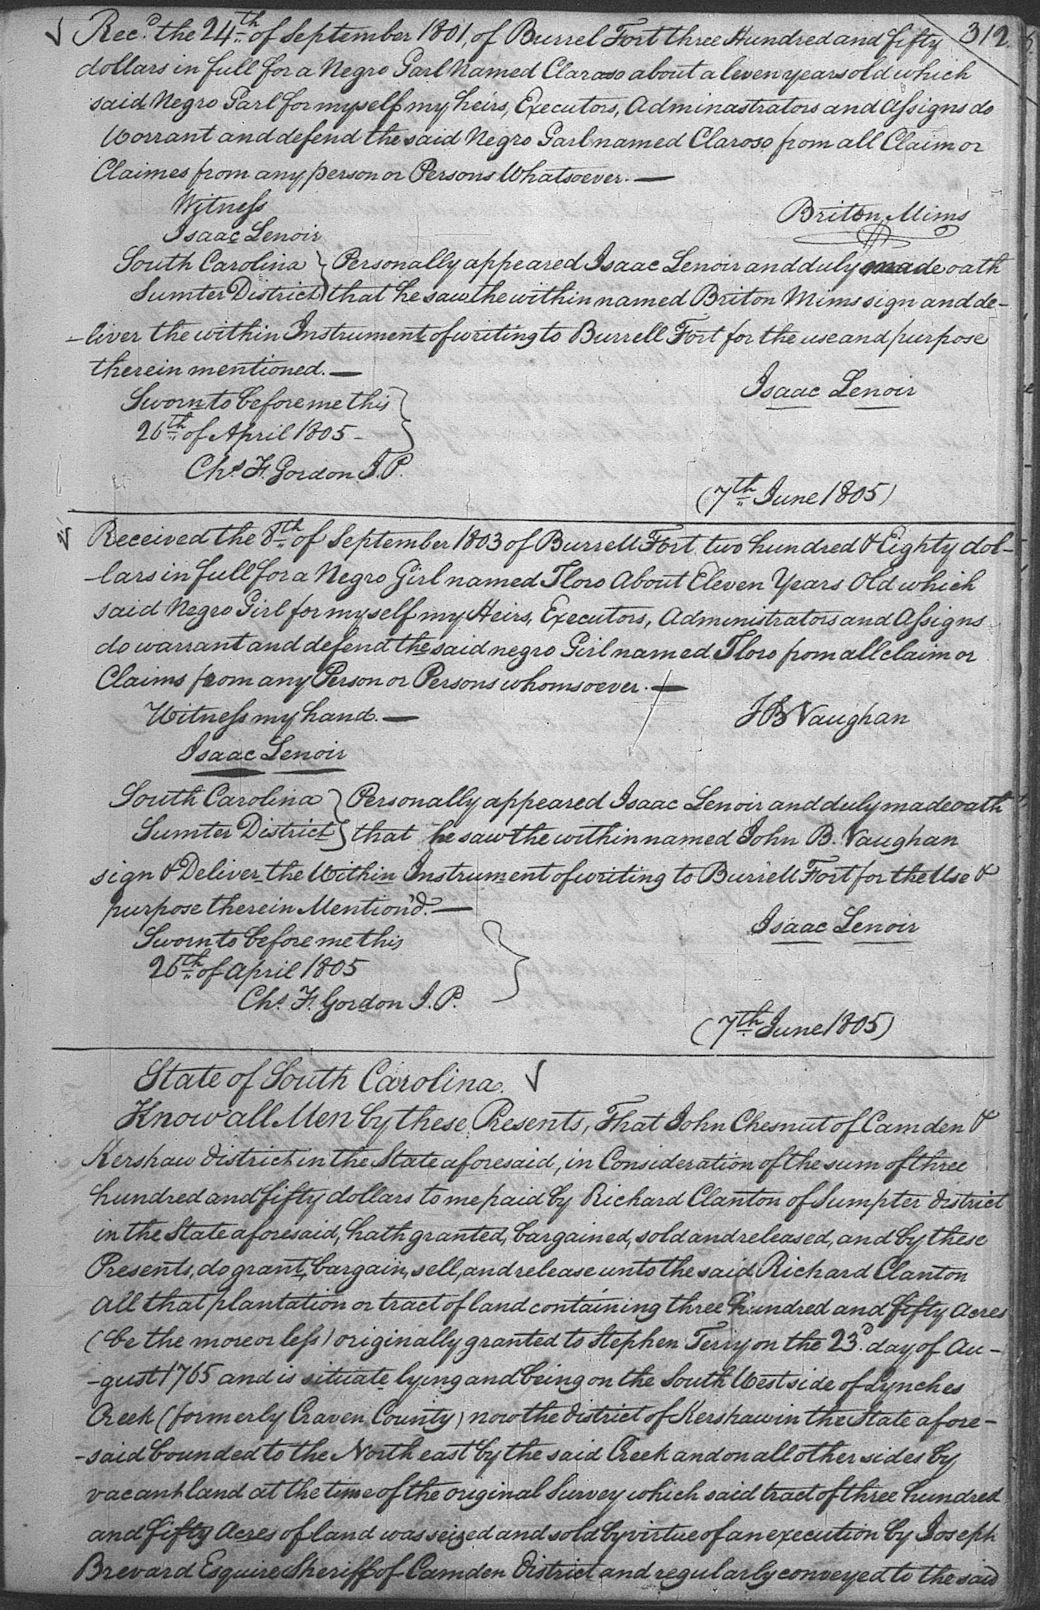 312
Rec.d the 24th of September 1801, of Burrel Fort three Hundred and fifty
dollars in full for a Negro Garl Named Claraso about a leven years old which
said Negro Garl for myself my heirs, Executors, Adminastrators and Assigns do
Worrant and defend the said Negro Garl named Claroso from all Claim or
Claimes from any person or Persons Whatsoever. —
Witness
Briton Mims
Isaac Lenoir
South Carolina } Personally appeared Isaac Lenoir and duly made oath
Sumter District } that he saw the within named Briton Mims sign and de-
-liver the within Instrument of writing to Burrell Fort for the use and purpose
therein mentioned. —
Isaac Lenoir
Sworn to before me this }
26th of April 1805 -
Chs. F. Gordon J.P.
(7th June 1805)
Received the 8th of September 1803 of Burrell Fort two hundred & Eighty dol-
-lars in full for a Negro Girl named Floro About Eleven Years Old which
said Negro Girl for myself my Heirs, Executors, Administrators and Assigns
do warrant and defend the said negro Girl named Floro from all claim or
Claims from any Person or Persons whomsoever. —
Witness my hand. —
J B Vaughan
Isaac Lenoir
South Carolina } Personally appeared Isaac Lenoir and duly made oath
Sumter District } that he saw the within named John B. Vaughan
sign & Deliver the Within Instrument of writing to Burrell Fort for the Use &
purpose therein Mention'd. —
Isaac Lenoir
Sworn to before me this }
26th of April 1805
Chs. F. Gordon J.P.
(7th June 1805)
State of South Carolina.
Know all Men by these Presents, That John Chesnut of Camden &
Kershaw district in the State aforesaid, in Consideration of the sum of three
hundred and fifty dollars to me paid by Richard Clanton of Sumpter district
in the State aforesaid, hath granted, bargained, sold and released, and by these
Presents, do grant, bargain, sell, and release unto the said Richard Clanton
All that plantation or tract of land containing three hundred and fifty Acres
(be the more or less) originally granted to Stephen Terry on the 23d. day of Au-
-gust 1765 and is situate lying and being on the South West side of Lynches
Creek (formerly Craven County) now the district of Kershaw in the State afore-
-said bounded to the North east by the said Creek and on all other sides by
vacant land at the time of the original Survey which said tract of three hundred
and fifty Acres of land was seized and sold by virtue of an execution by Joseph
Brevard Esquire Sheriff of Camden district and regularly conveyed to the said